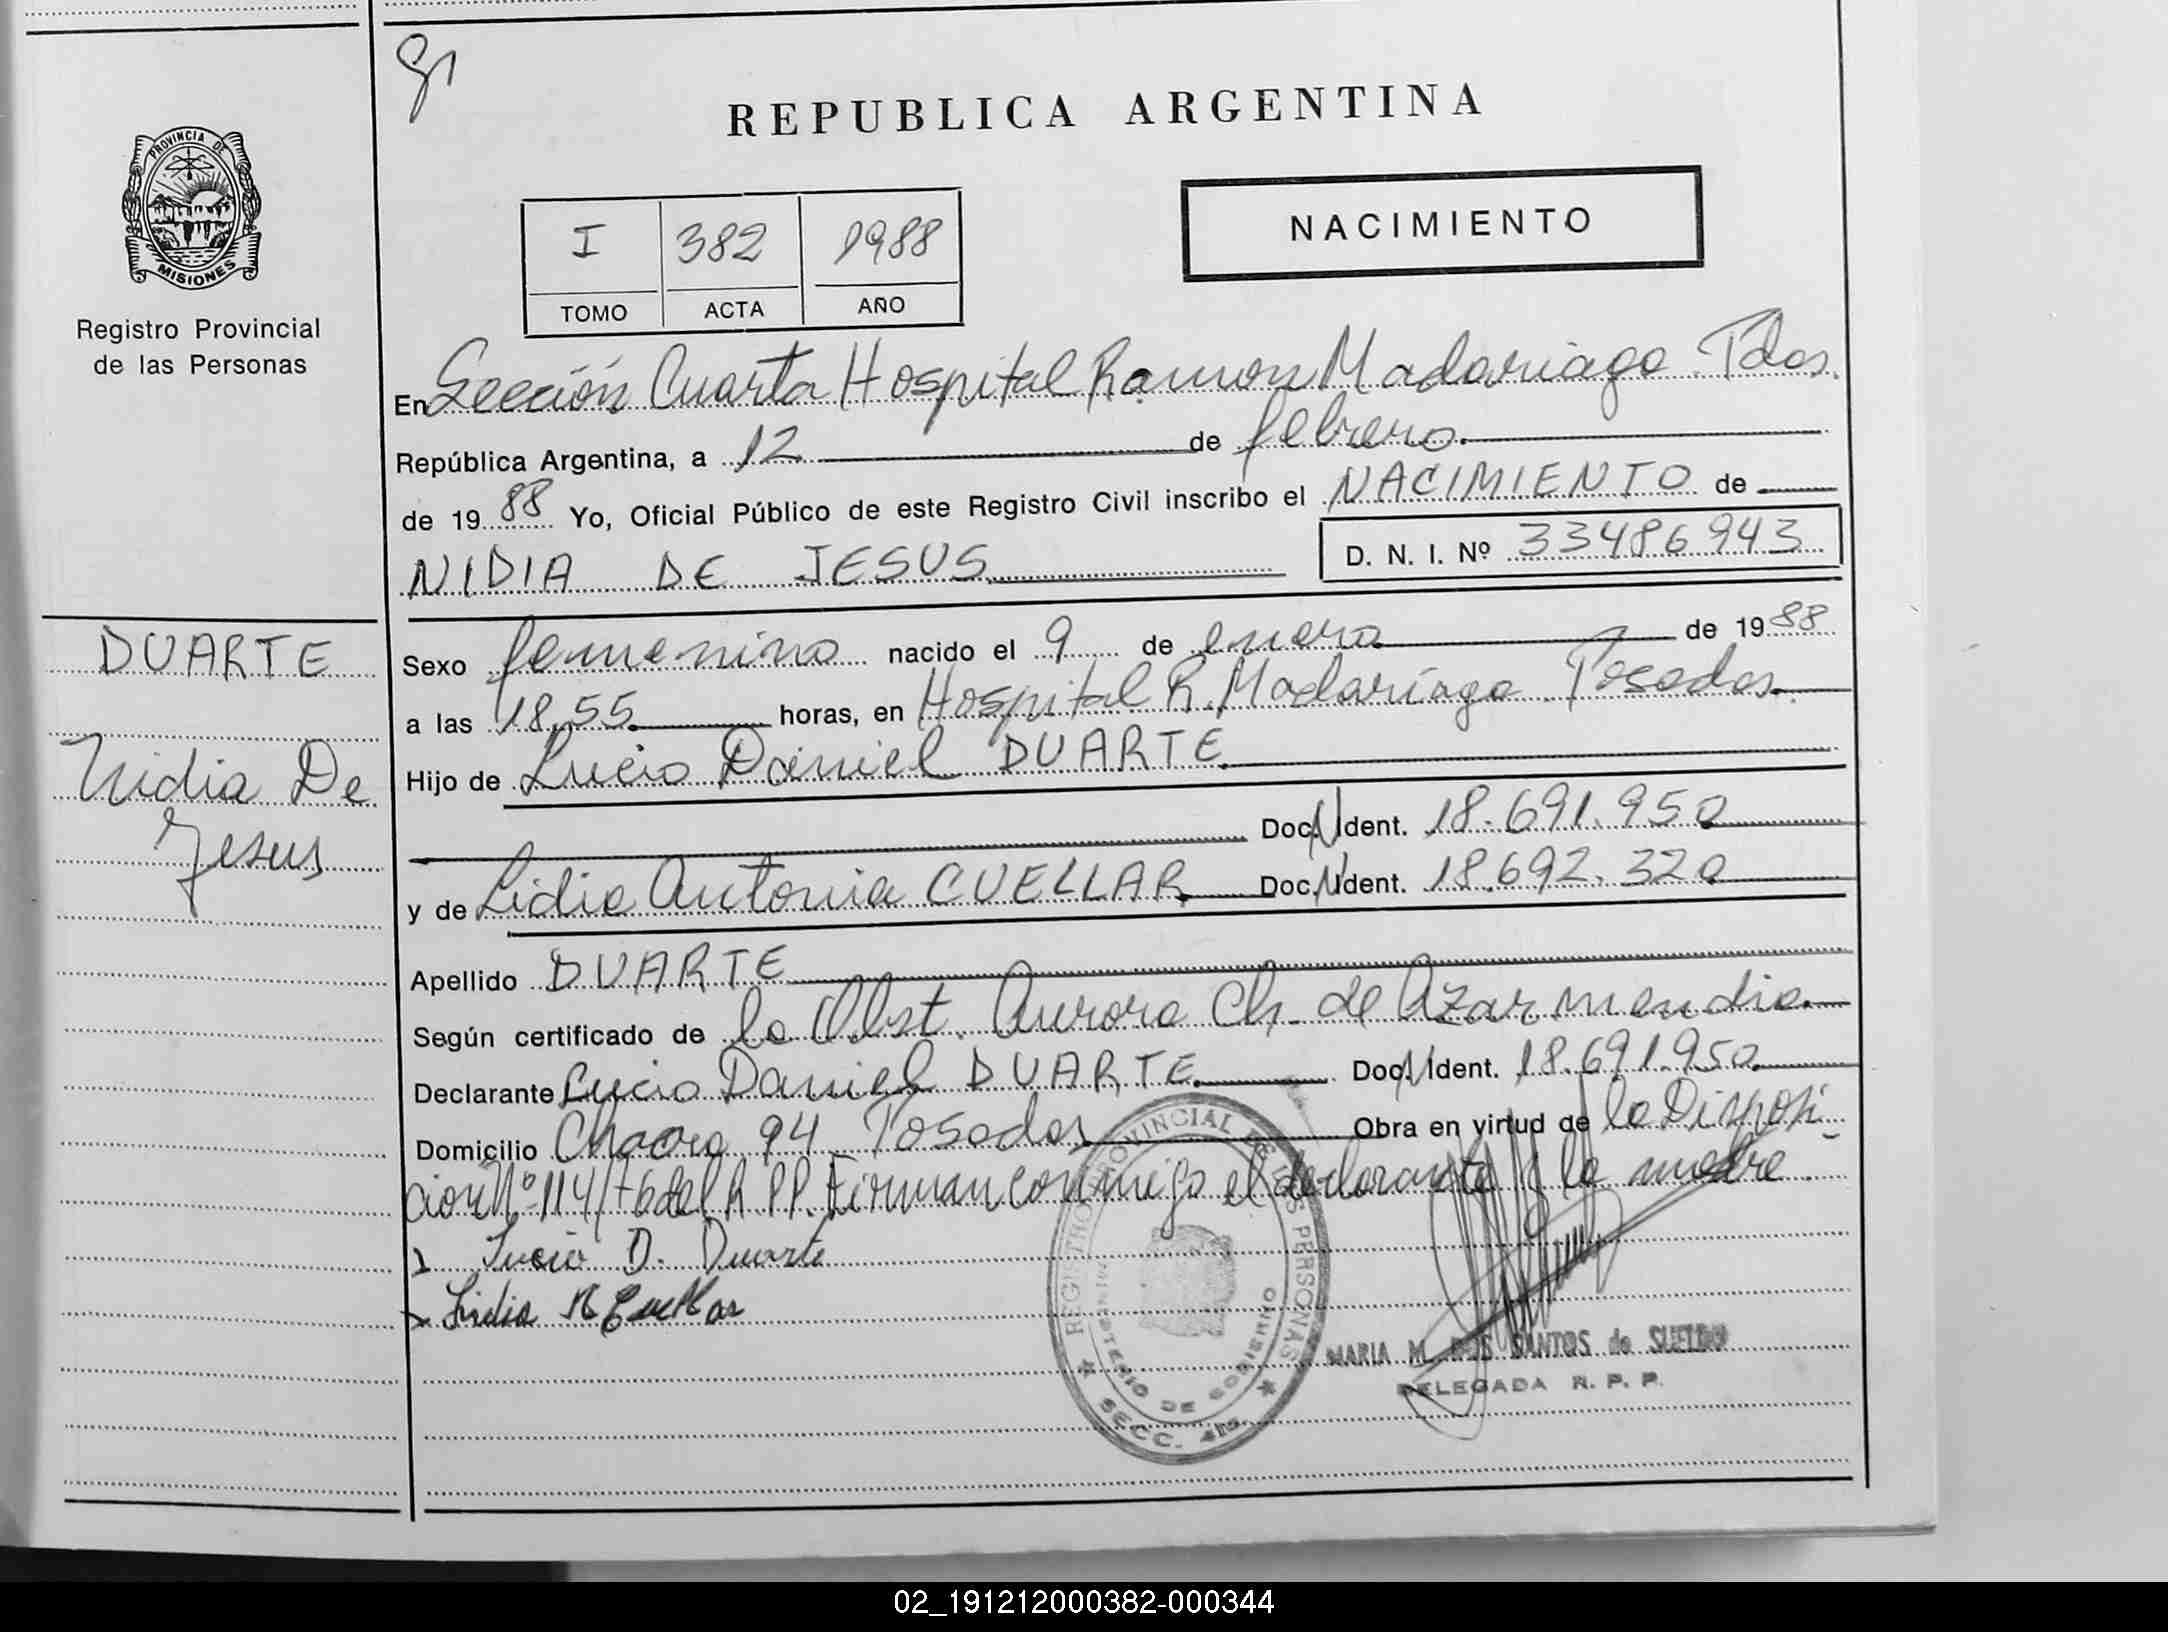 PROVINCIA DE
MISIONES
Registro Provincial
de las Personas
DUARTE
Nidia De
Jesus
REPUBLICA ARGENTINA
I 382 1988
TOMO ACTA AÑO
NACIMIENTO
En Sección Cuarta Hospital Ramon Madariaga Pdas.
República Argentina, a 12 de febrero.
de 1988 Yo, Oficial Público de este Registro Civil inscribo el NACIMIENTO de
NIDIA DE JESUS D. N. I. Nº 33486943
Sexo femenino nacido el 9 de enero de 1988
a las 18,55 horas, en Hospital R. Madariaga Posadas.
Hijo de Lucio Daniel DUARTE
Doc. N Ident. 18.691.950
y de Lidia Antonia CUELLAR Doc. N Ident. 18.692.320
Apellido DUARTE
Según certificado de la Obst. Aurora Ch. de Azarmendia.
Declarante Lucio Daniel DUARTE Doc. N Ident. 18.691.950
Domicilio Chacra 94 Posadas Obra en virtud de la Disposi
cion Nº 114/76 del R.P.P. Firman conmigo el declarante y la madre.
Lucio D. Duarte
Lidia A Cuellar
REGISTRO PROVINCIAL DE LAS PERSONAS
MINISTERIO DE GOBIERNO
SECC. 4ta.
MARIA M. DOS SANTOS de SUELDO
DELEGADA R. P. P.
02_191212000382-000344